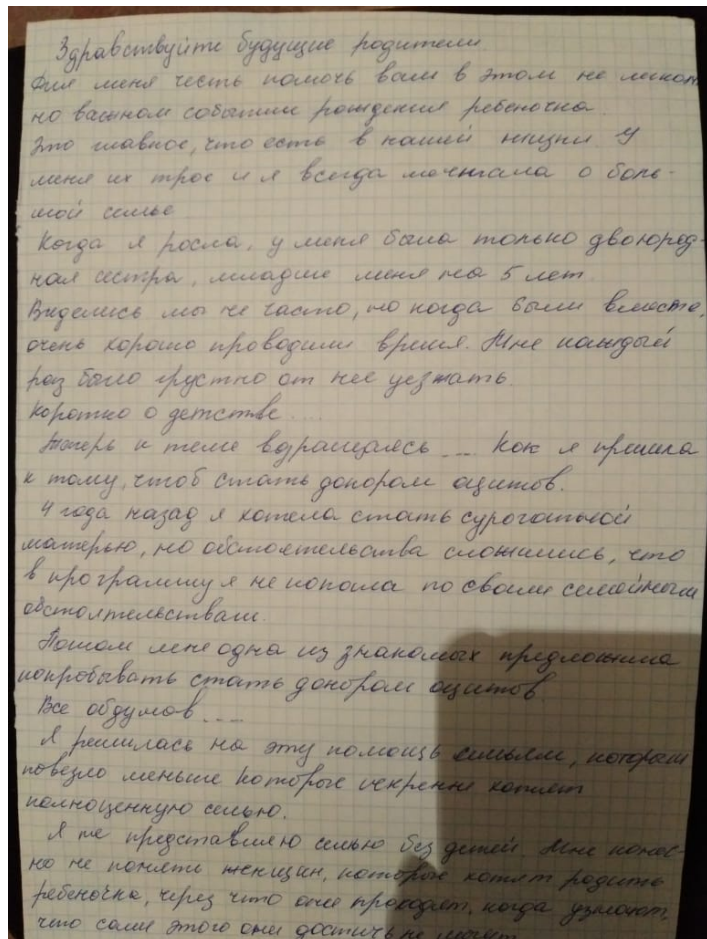 Здравствуйте будущие родители.
Для меня честь помочь вам в этом не легком
но важном событии рождения ребеночка.
Это главное, что есть в нашей жизни. У
меня их трое и я всегда мечтала о боль-
шой семье
Когда я росла, у меня была только двоюрод-
ная сестра, младше меня на 5 лет.
Виделись мы не часто, но когда были вместе,
очень хорошо проводили время. Мне каждый
раз было грустно от нее уезжать.
Коротко о детстве....
Теперь к теме возращаясь ... Как я пришла
к тому, чтоб стать донором ацитов.
4 года назад я хотела стать сурогатной
матерью, но обстоятельства сложились, что
в программу я не попала по своим семейным
обстоятельствам.
Потом мне одна из знакомых предложила
попробывать стать донором ацитов.
Все обдумав ....
Я решилась на эту помощь семьям, которым
повезло меньше которые искренне хотят
полноценную семью.
Я не представляю семью без детей. Мне
но не понять женщин, которые хотят родить
ребеночка, через что они проходят, когда узнают,
что сами этого они достичь не могут